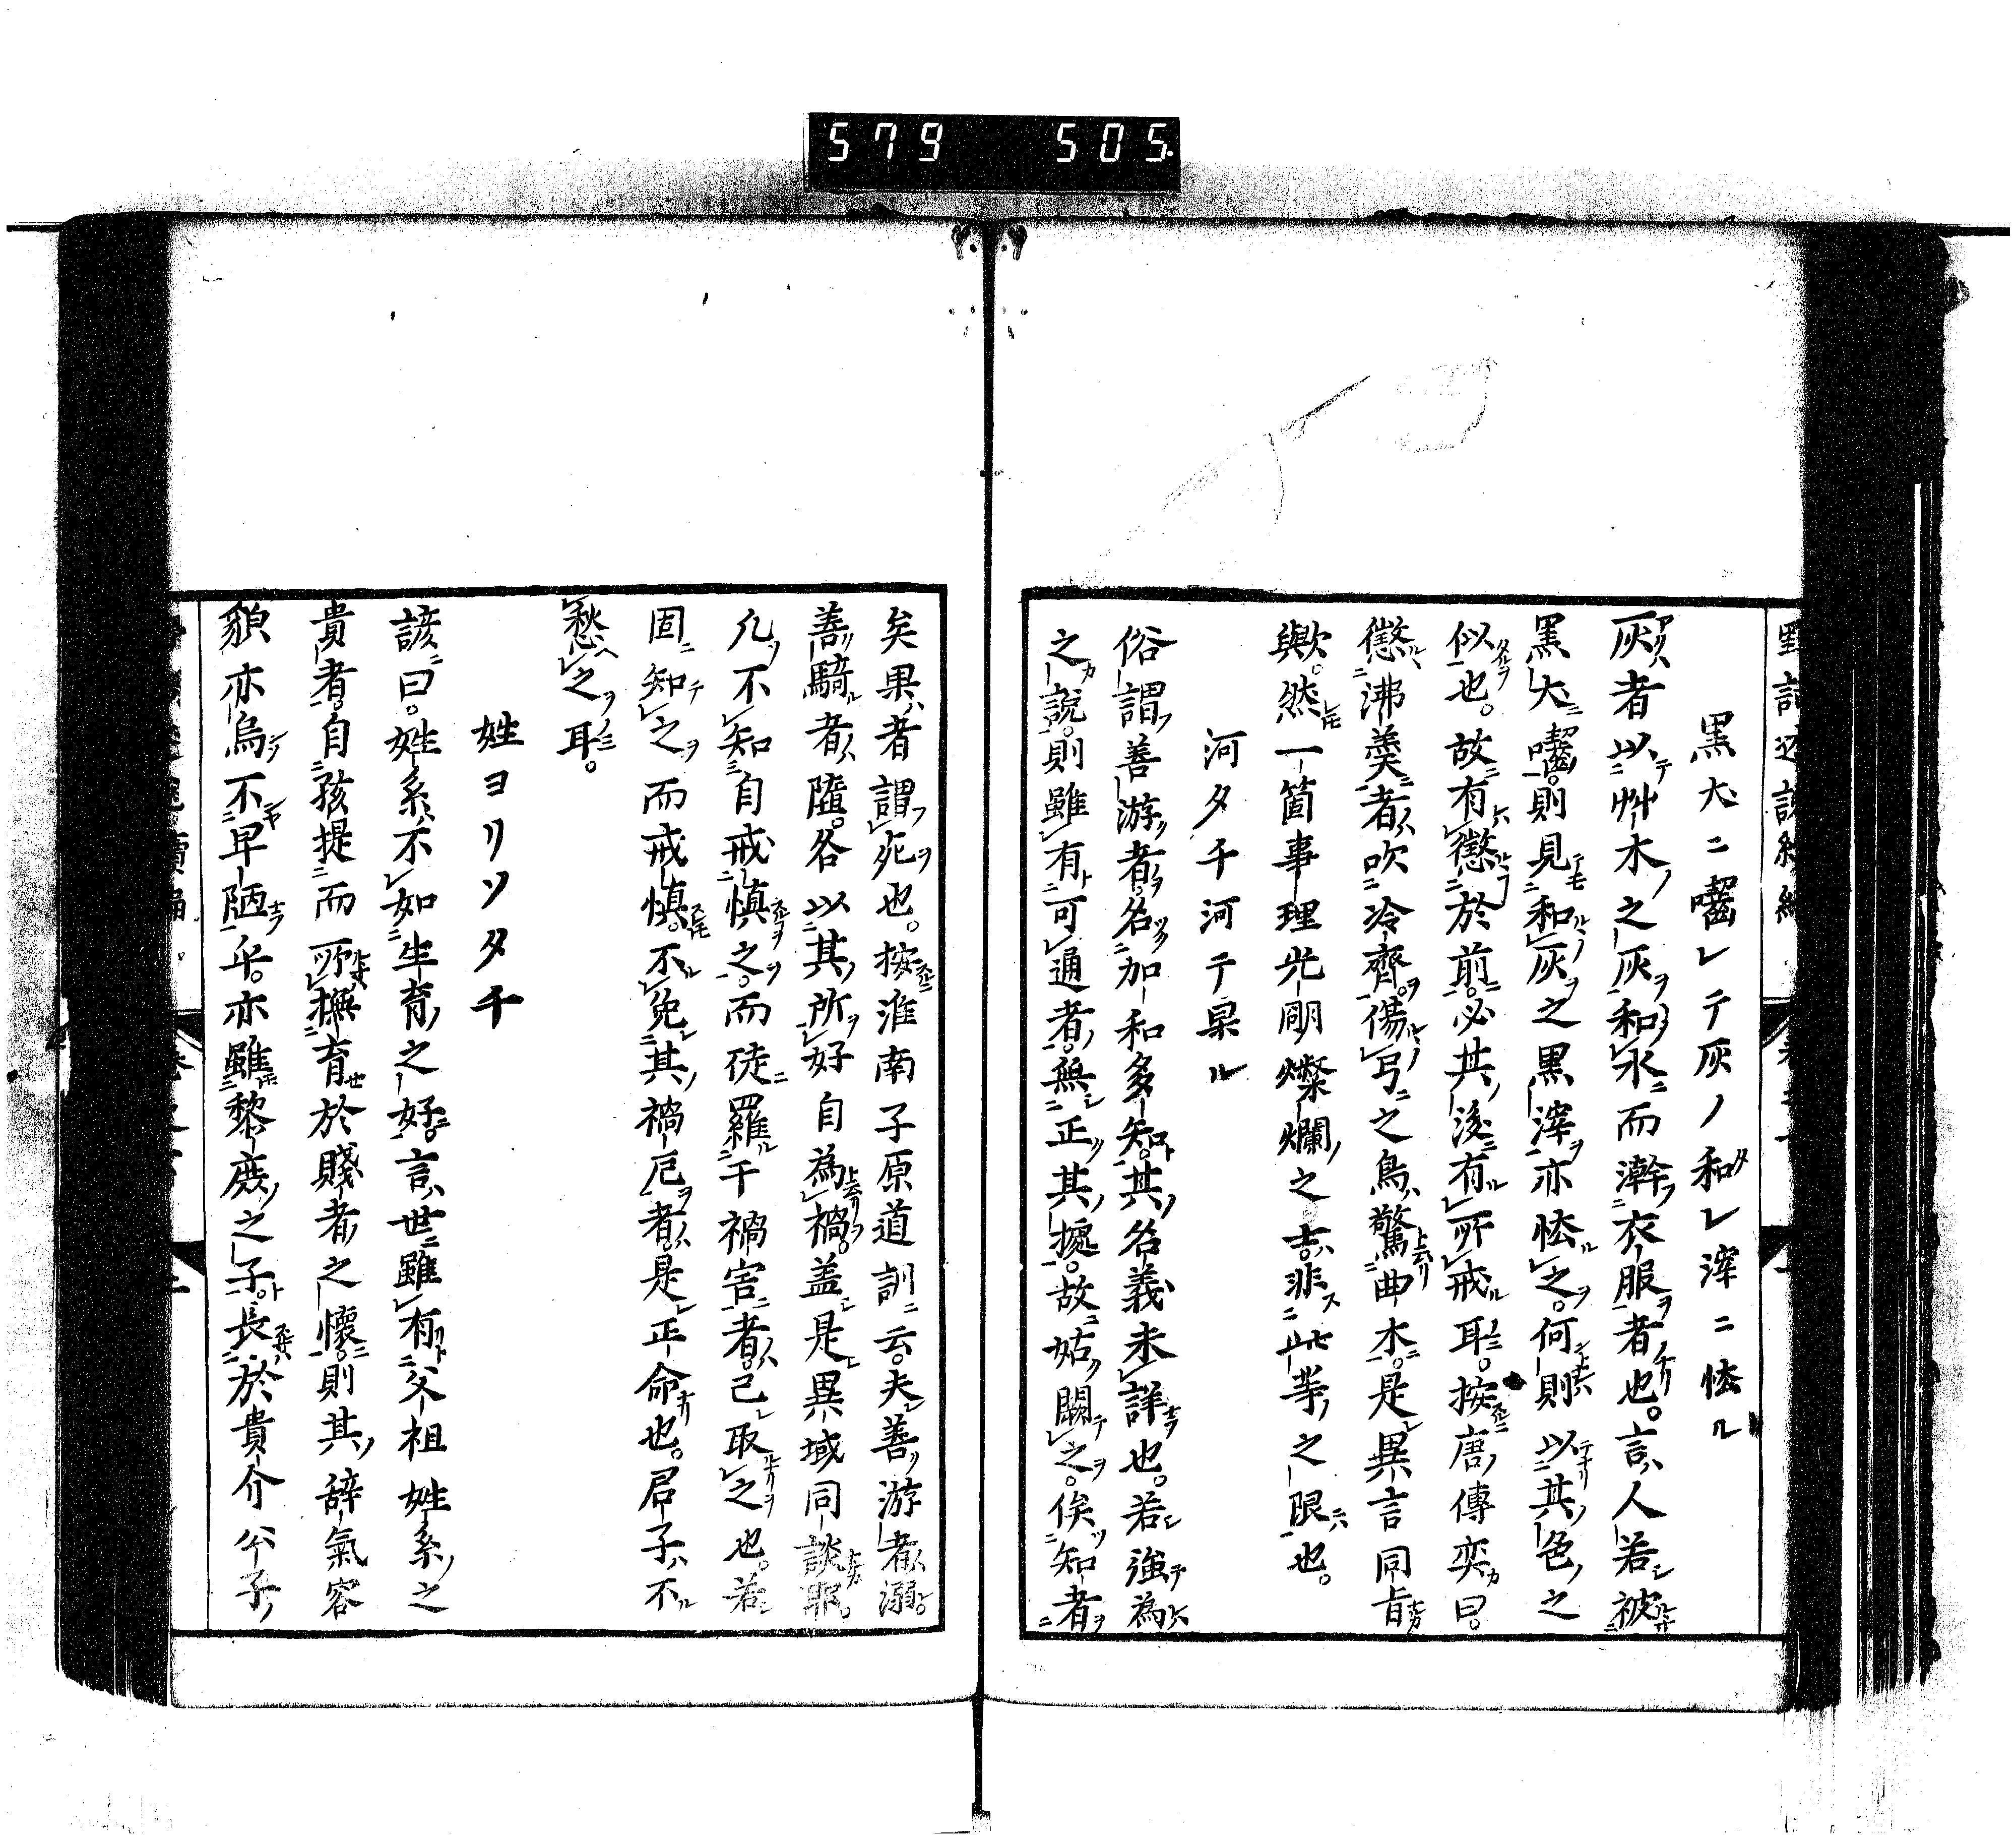 579 505
黒犬ニ囓レテ灰ノ和レ滓ニ恠ル
灰者以艸木之灰和水而澣衣服者也。言人若被
黒犬囓則見和灰之黒滓亦恠之。何則以其色之
似也。故有懲於前。必其後有所戒耳。按唐傳奕曰。
懲沸羹者吹冷齊。傷弓之鳥驚曲木。是異言同旨
歟。然一箇事理光明燦爛之言。非此等之限也。
河タチ河テ果ル
俗謂善游者名加和多知。其名義未詳也。若強為
之説。則雖有可通者。無正其據。故姑闕之。俟知者
矣果者謂死也。按淮南子原道訓云。夫善游者溺。
善騎者墮。各以其所好自為禍。盖是異域同談耶。
凡不知自戒慎之。而徒羅干禍害者。己取之也。若
固知之而戒慎。不免其禍厄者。是正命也。君子不
愁之耳。
姓ヨリソタチ
諺曰。姓系不如生育之好。言世雖有父祖姓系之
貴者自孩提而所撫育於賤者之懷。則其辞氣容
貌亦烏不卑陋乎。亦雖黎庶之子。長於貴介公子